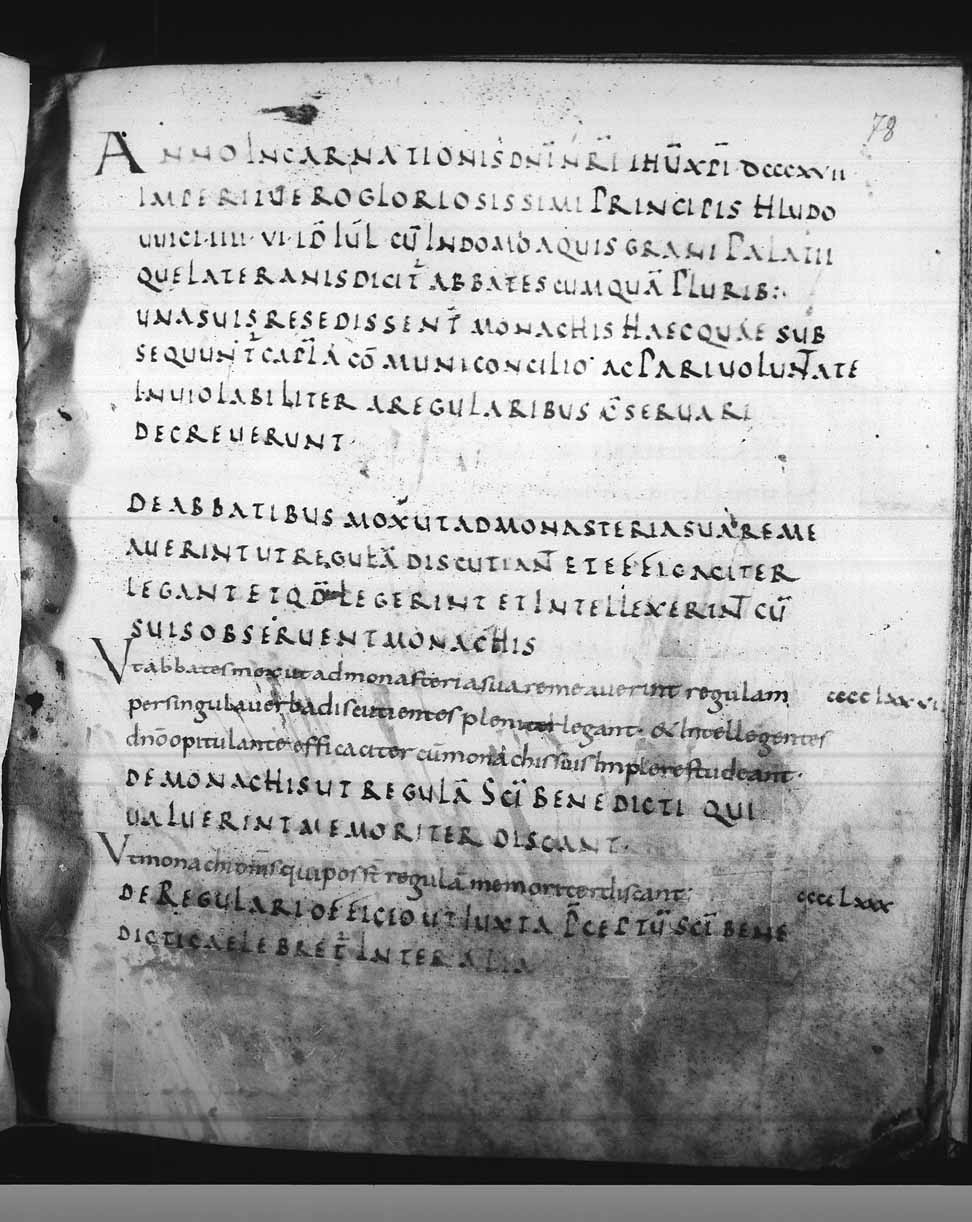 78
ANNO INCARNATIONIS DN̄I NR̄I IHŪ XP̄I DCCCXVII
IMPERII UERO GLORIOSISSIMI PRINCIPIS HLUDO
UUICI·IIII· VI ID̄ IŪL CŪ IN DOMO AQUIS GRANI PALATII
QUE LATERANIS DICIT̄ ABBATES CUM QUĀ PLURIB:·
UNA SUIS RESEDISSENT̄ MONACHIS HAEC QUAE SUB
SEQUUNT̄ CAPLĀ CŌMUNI CONCILIO AC PARI UOLUNTATE
INUIOLABILITER A REGULARIBUS C̄SERUARI
DECREUERUNT·
DE ABBATIBUS MOX UT AD MONASTERIA SUA REME
AUERINT UT REGULĀ DISCUTIANT̄ ET EFFICACITER
LEGANT ET QD̄ LEGERINT ET INTELLEXERINT CŪ
SUIS OBSERUENT MONACHIS
Vt abbates mox ut ad monasteria sua remeauerint regulam cccc lxxvii
per singula uerba discutientes pleniter legant· & Intellegentes
dn̄o opitulante efficaciter cū monachis suis Implere studeant·
DE MONACHIS UT REGULĀ SC̄I BENEDICTI QUI
UALUERINT MEMORITER DISCANT·
Vt monachi om̄s qui poss̄t regulā memoriter discant: cccc Lxxx
DE REGULARI OFFICIO UT IUXTA P̄CEPTŪ SC̄I BENE
DICTI CAELEBRET̄ INTER ALIA